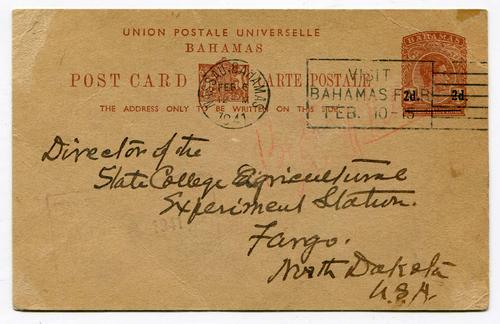 UNION POSTALE UNIVERSELLE
BAHAMAS
POST CARD CARTE POSTALE
THE ADDRESS ONLY TO BE WRITTEN ON THIS SIDE
NASSAU BAHAMAS
FEB 6
1941
VISIT
BAHAMAS FAIR
FEB. 10-15
BAHAMAS
2d. 2d.
Director of the
State College Agricultural
Experiment Station.
Fargo.
North Dakota
U.S.A.
1941